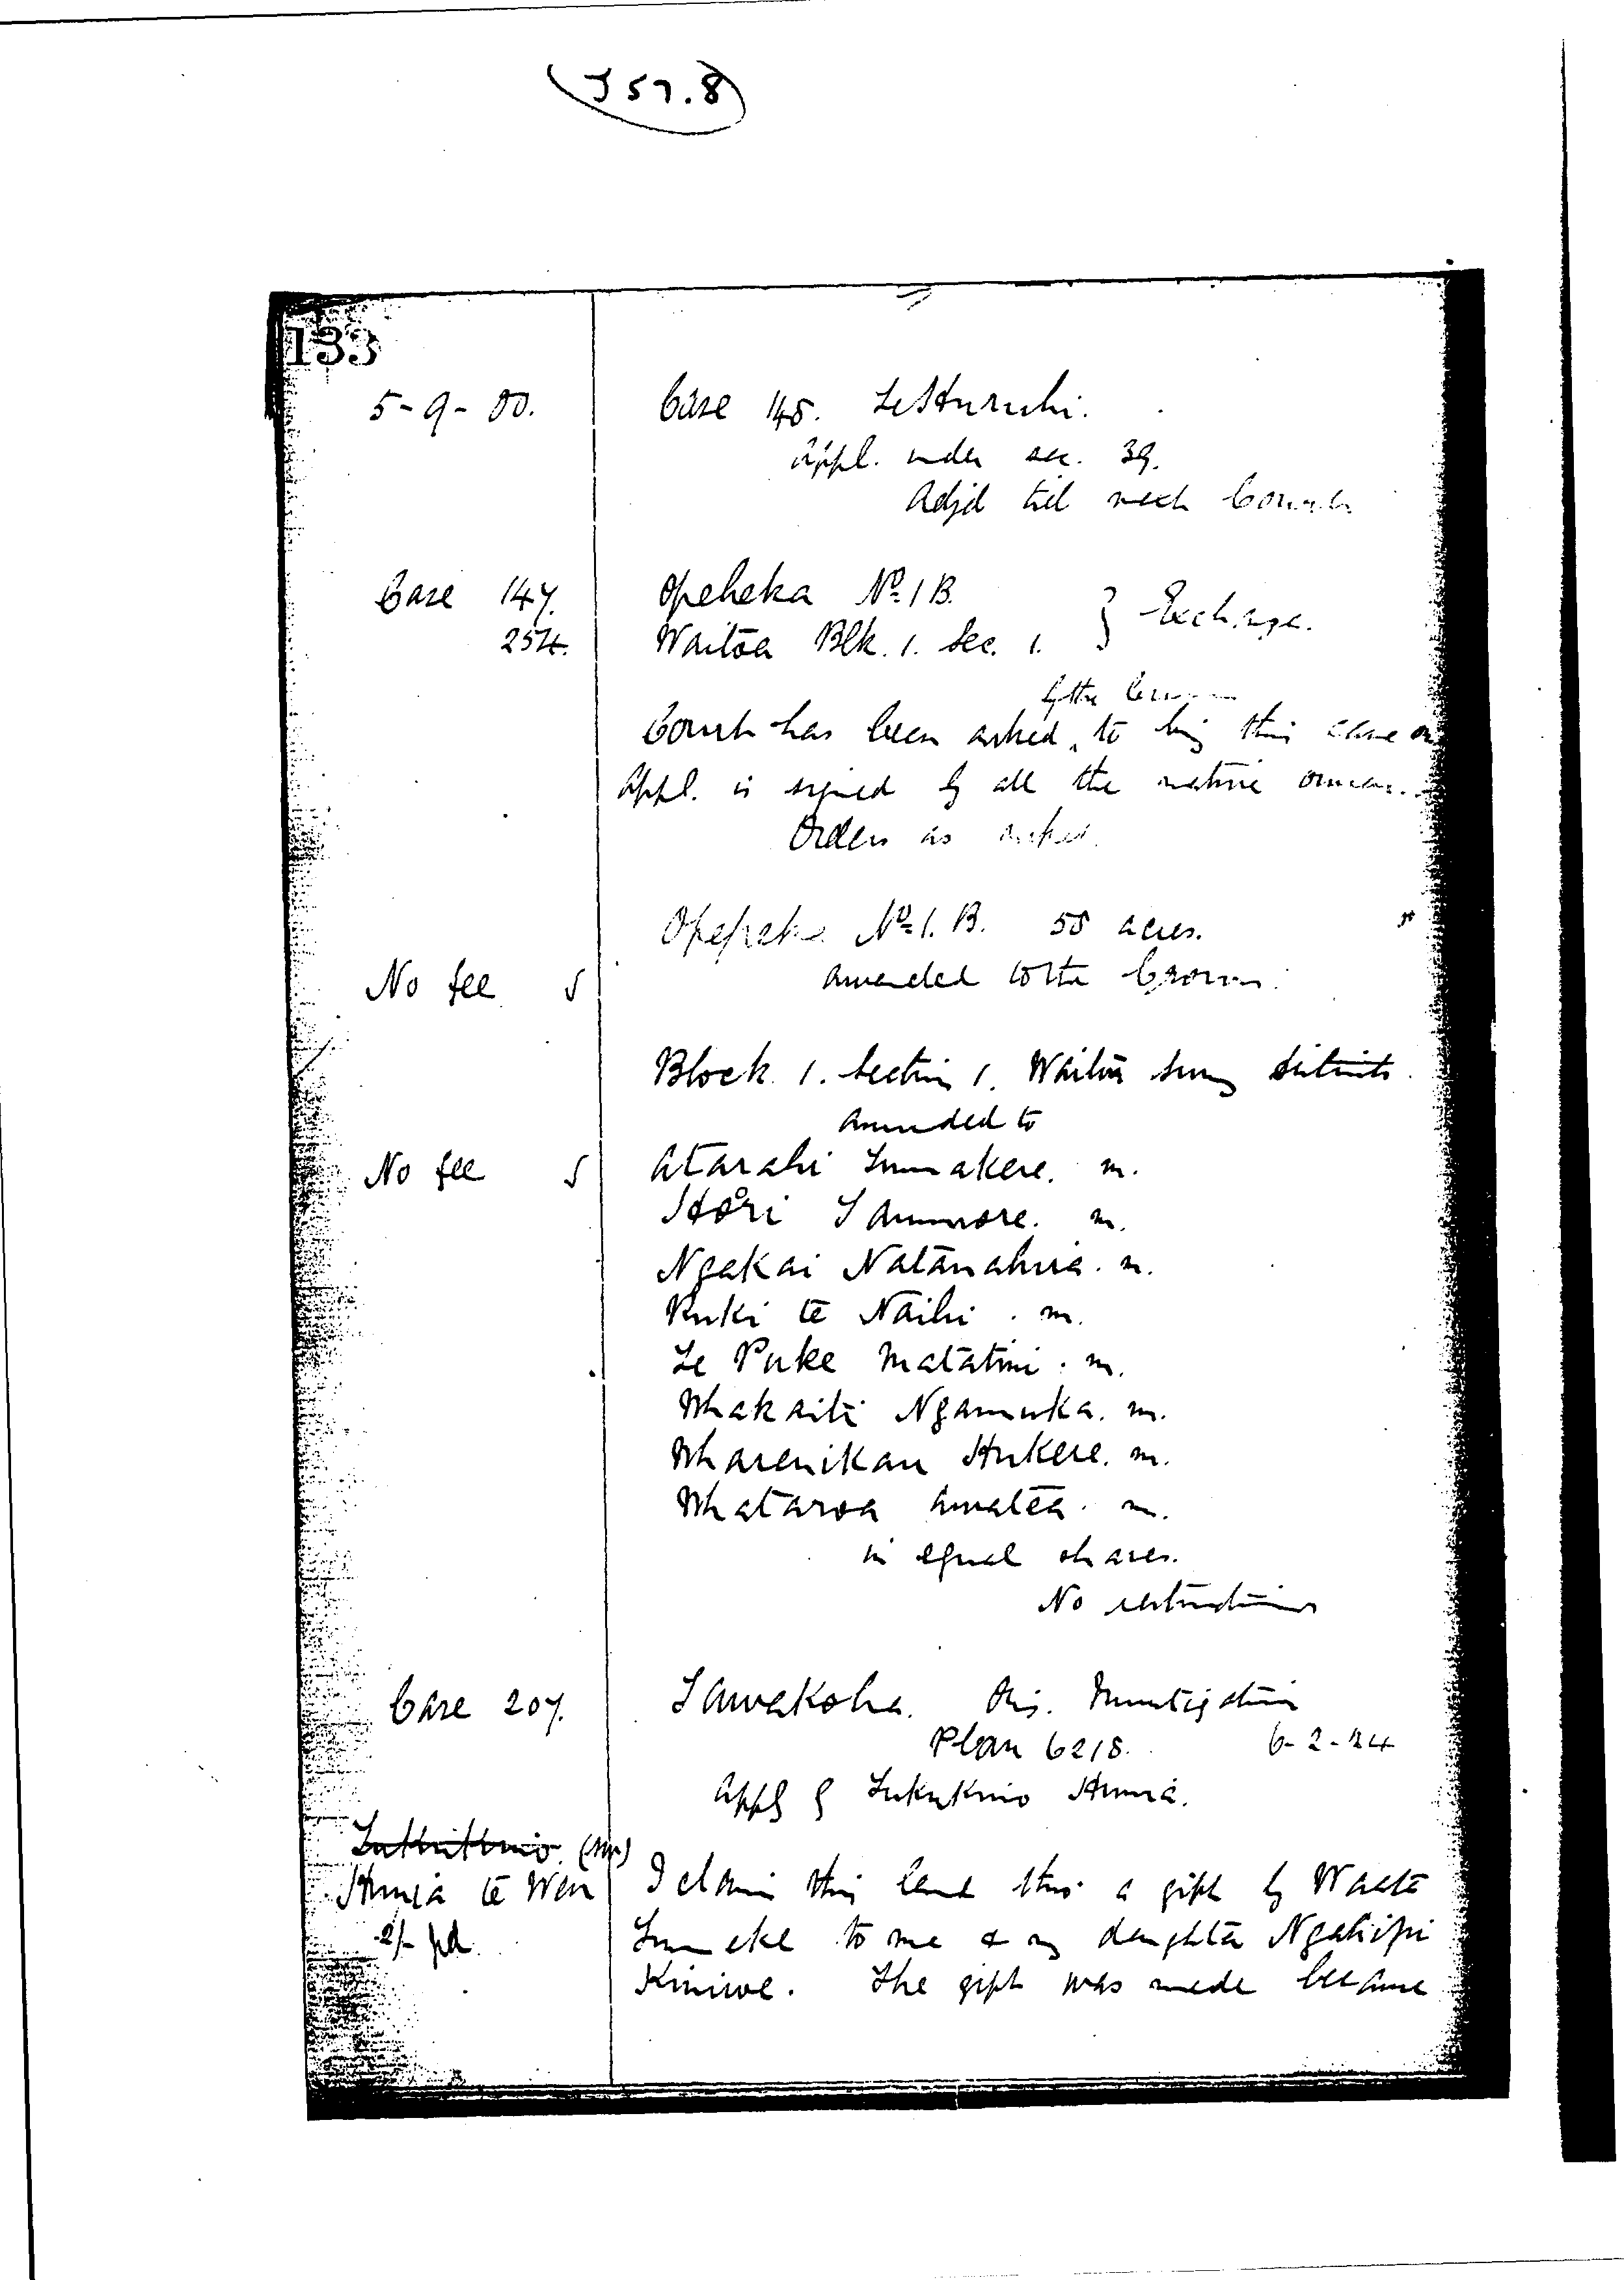 J57.8
133
5-9-00. Case 145. Te Huruhi.
Appl. under sec. 39.
Adjd till next Court
Case 147. Opeheka No. 1 B.
254. Waitoa Blk. 1. Sec. 1. } Exchange.
by the Crown
Court has been asked to bring this case on
Appl. is signed by all the native owners.
Orders as asked.
No. 1. B. 58 acres.
No fee awarded to the Crown.
Block 1. Section 1. Waitoa Survey district.
awarded to
No fee Atarahi Tumakere. m.
Hori m.
Ngakai Natanahira. m.
Ruki te Naihi. m.
Te Puke Matatini. m.
Whakaiti Ngamuka. m.
Wharenikau Hukere. m.
Whataroa Amatea. m.
in equal shares.
No restrictions
Case 207. Tawakoha. Orig. Investigation
Plan 6218. 6-2-24
Appl by Tukukino Hunia.
Hunia te I claim this land thro' a gift by
2/- pd. to me & my daughter Ngahipi
Kiniwe. The gift was made because